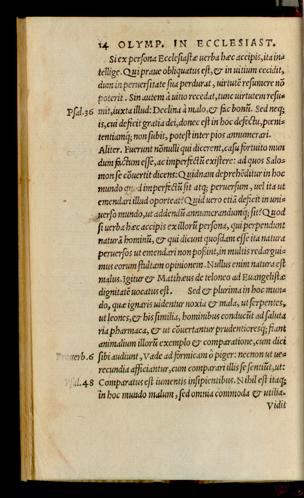 14 OLYMP. IN ECCLESIAST.
Si ex persona Ecclesiastæ uerba hæc accipis, ita in=
tellige. Qui praue obliquatus est, & in uitium cecidit,
dum in peruersitate sua perdurat, uirtutē resumere nō
poterit. Sin autem à uitio recedat, tunc uirtutem resu=
Psal.36 mit, iuxta illud: Declina à malo, & fac bonū. Sed neq;
is, cui deficit gratia dei, donec est in hoc defectu, pœni=
tentiamq; non subit, potest inter pios annumerari.
Aliter. Fuerunt nōnulli qui dicerent, casu fortuito mun
dum factum esse, ac imperfectū existere: ad quos Salo=
mon se cōuertit dicens: Quidnam deprehōditur in hoc
mundo quod imperfectū sit atq; peruersum, uel ita ut
emendari illud oporteat? Quid uero etiā deficit in uni=
uerso mundo, ut addendū annumerandumq; sit? Quod
si uerba hæc accipis ex illorū persona, qui perpendunt
naturā hominū, & qui dicunt quosdam esse ita natura
peruersos ut emendari non poßint, in multis redargui=
mus eorum stultam opinionem. Nullus enim natura est
malus. Igitur & Matthæus de telonco ad Euangelistæ
dignitatē uocatus est. Sed & plurima in hoc mun=
do, quæ ignaris uidentur noxia & mala, ut serpentes,
ut leones, & his similia, hominibus conducūt ad saluta
ria pharmaca, & ut cōuertantur prudentiores q; fiant
animalium illorū exemplo & comparatione, cum dici
Prouerb.6 sibi audiunt, Vade ad formicam ô piger: necnon ut ue=
recundia afficiantur, cum comparari illis se sentiūt, ut:
Psal.48 Comparatus est iumentis insipientibus. Nihil est itaq;
in hoc mundo malum, sed omnia commoda & utilia.
Vidit